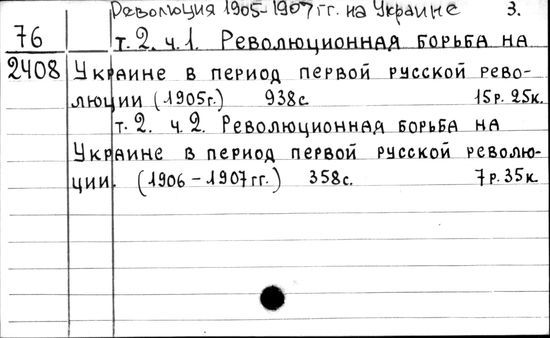 Революция 1905-1907 гг. на Украине 3.
76 т. 2. ч. 1. Революционная борьба на
2408 Украине в период первой русской рево-
люции (1905г.) 938с. 15р. 25к.
т. 2. ч. 2. Революционная борьба на
Украине в период первой русской револю-
ции. (1906-1907гг.) 358с. 7р. 35к.